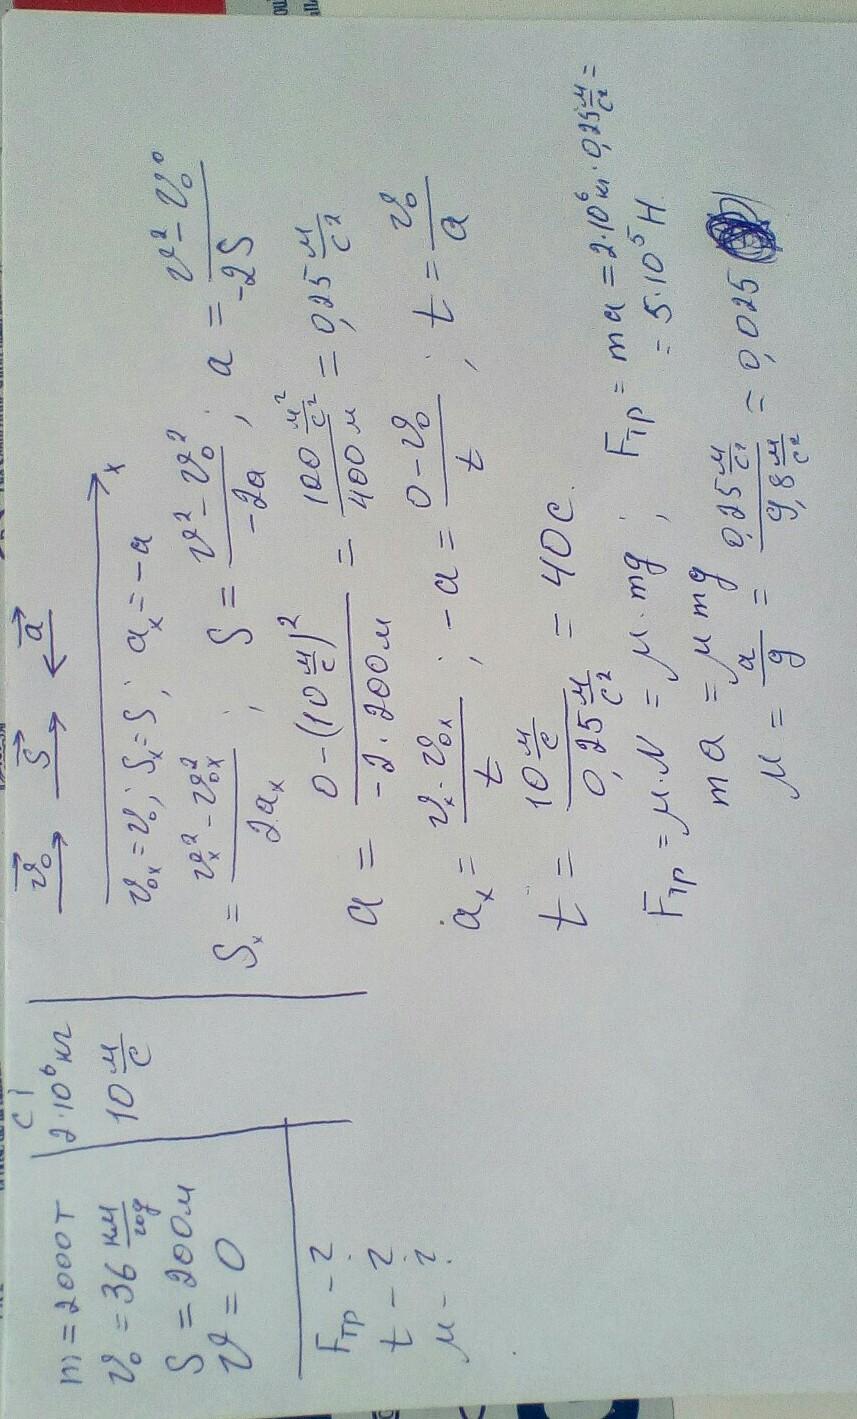 m = 2000 т
v₀ = 36 км/год
S = 200 м
v = 0
Fтр - ?
t - ?
μ - ?
СІ
2·10⁶ кг
10 м/с
v₀ S a
x
v₀ₓ = v₀; Sₓ = S; aₓ = -a
Sₓ = (vₓ² - v₀ₓ²)/(2aₓ); S = (v² - v₀²)/(-2a); a = (v² - v₀⁰)/(-2S)
a = (0 - (10 м/с)²)/(-2·200 м) = (100 м²/с²)/(400 м) = 0,25 м/с²
aₓ = (vₓ - v₀ₓ)/t; -a = (0 - v₀)/t; t = v₀/a
t = (10 м/с)/(0,25 м/с²) = 40 с.
Fтр = μ·N = μ·mg; Fтр = ma = 2·10⁶ кг·0,25 м/с² =
= 5·10⁵ Н
ma = μmg
μ = a/g = (0,25 м/с²)/(9,8 м/с²) = 0,025